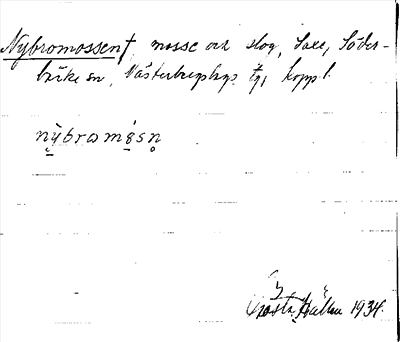 Nybromossen †, mosse och slog, Saxe, Söder-
bärke sn, Västerbergslags tg, Koppl.
nỳbrωmósn̥
Gösta Hällen 1934.